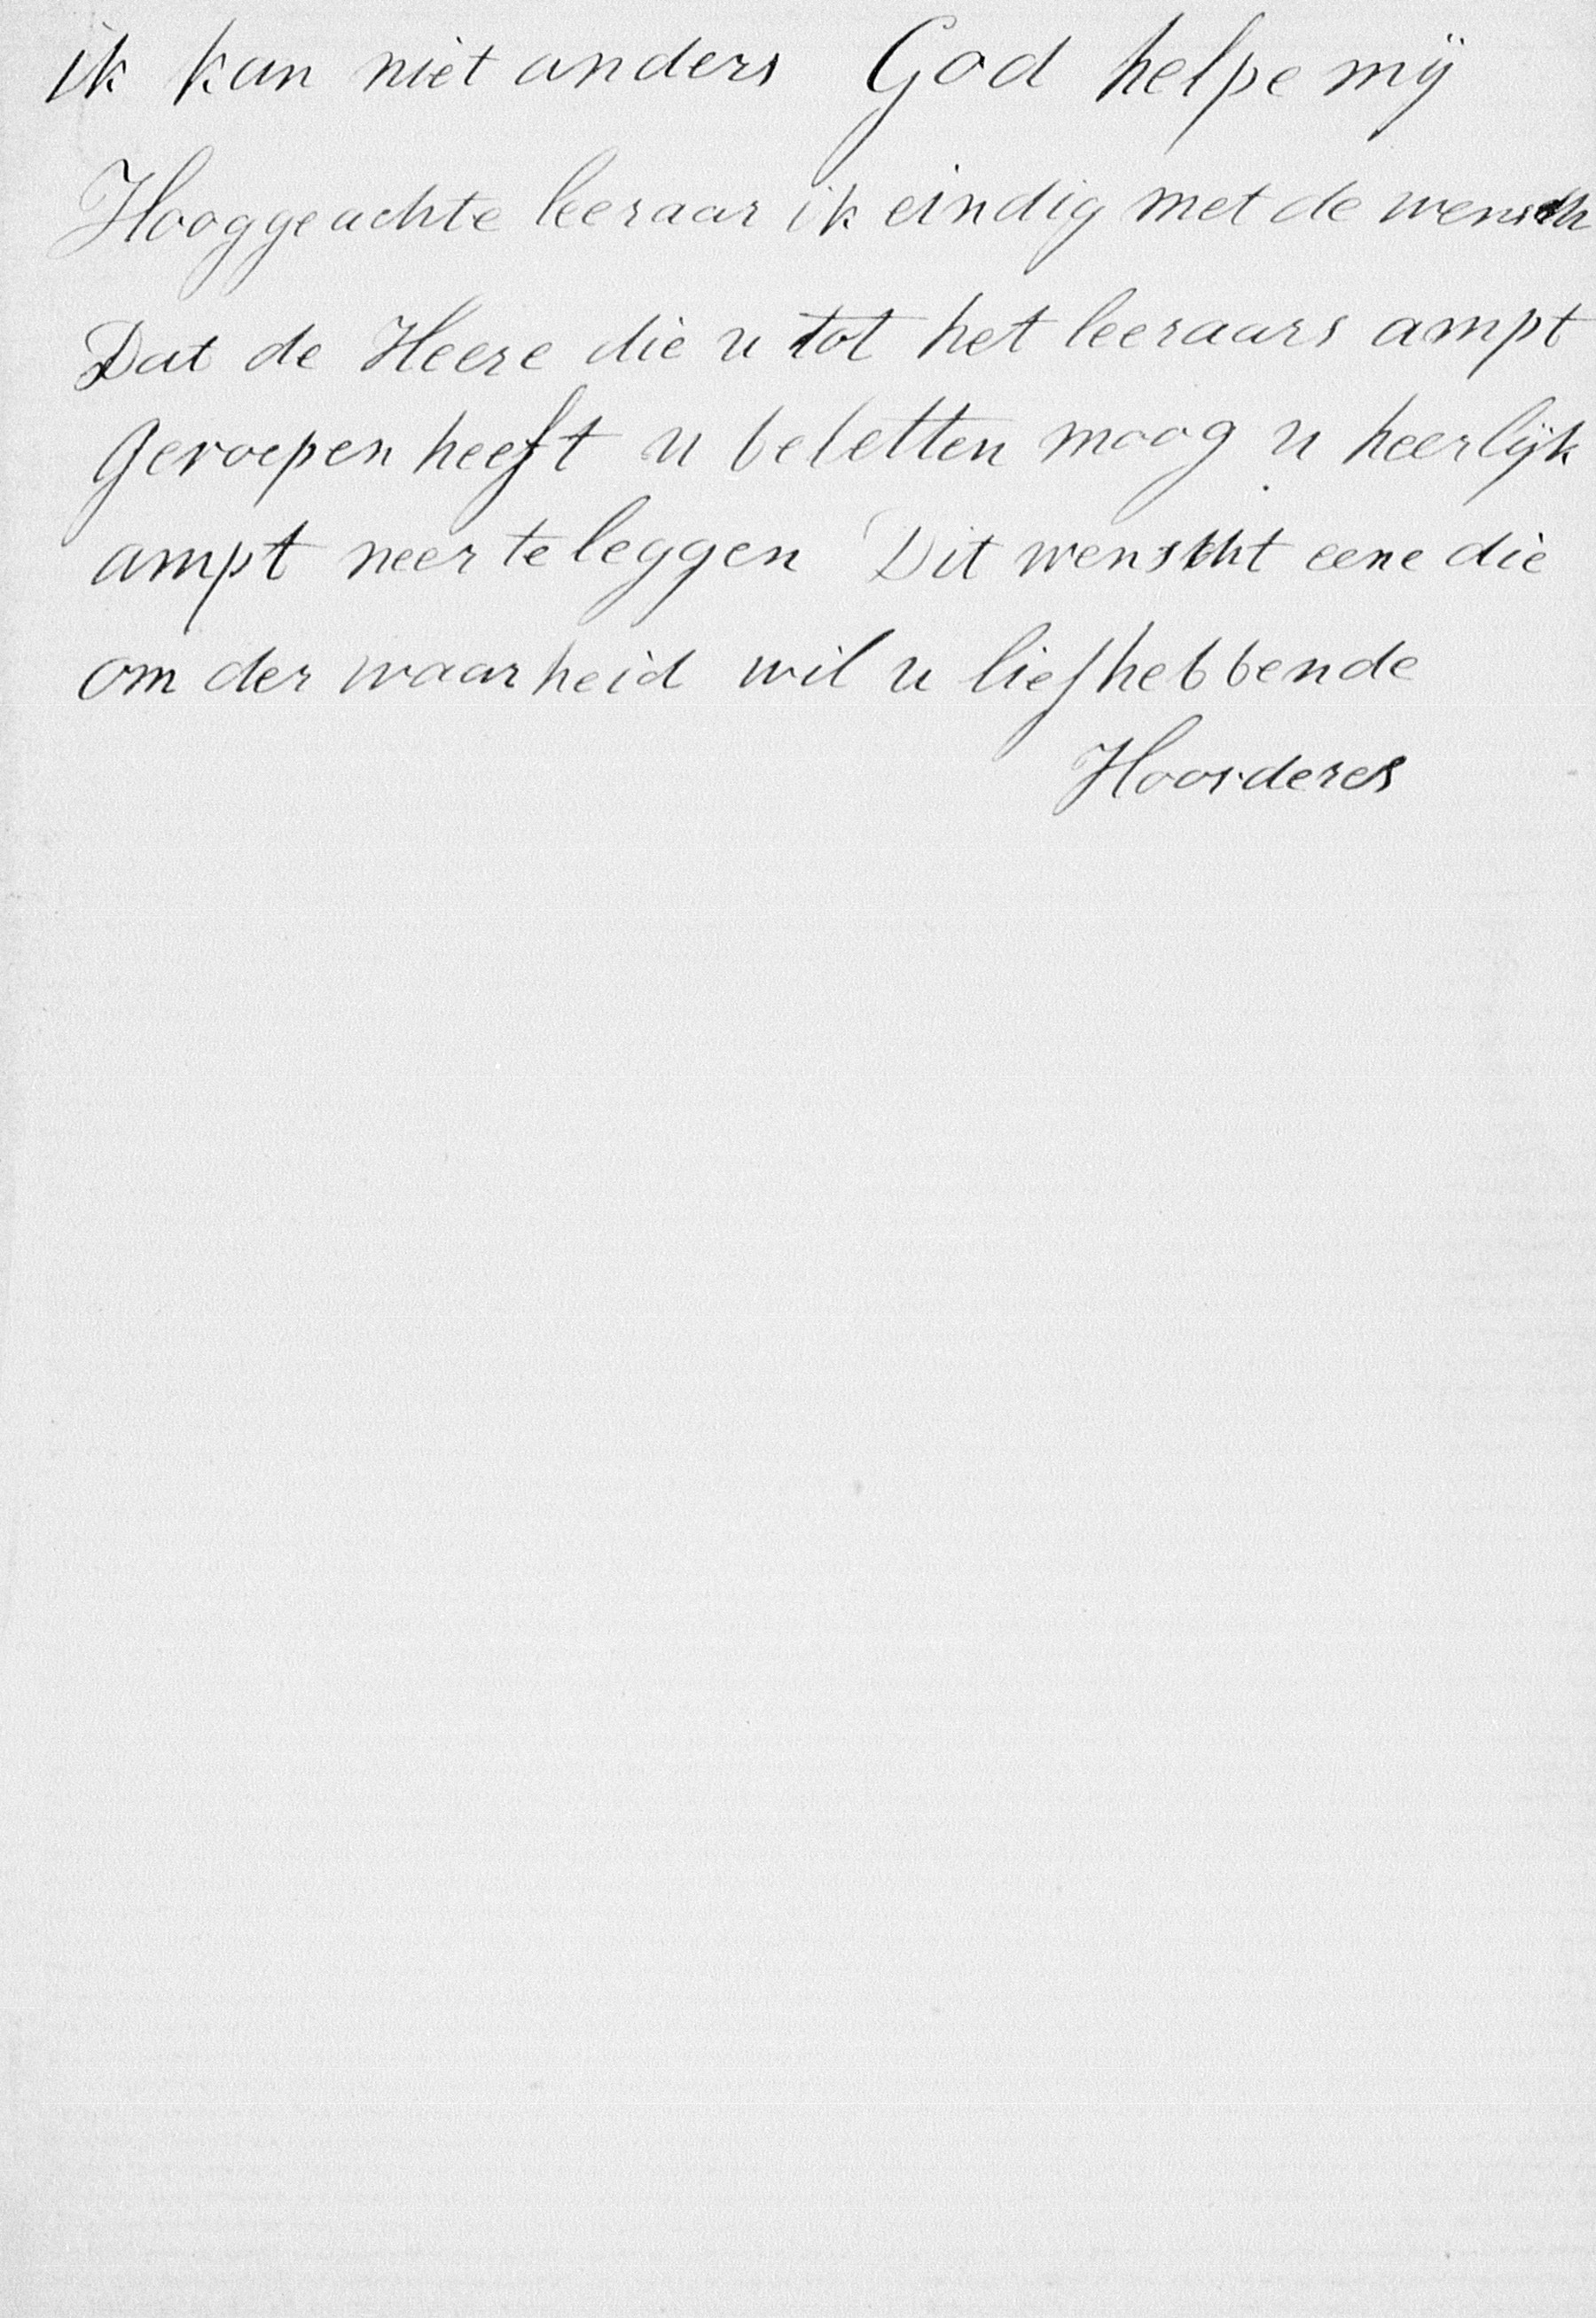 ik kan niet anders God helpe mij
Hooggeachte leeraar ik eindig met de wensch
Dat de Heere die u tot het leeraars ampt
Geroepen heeft u beletten moog u heerlijk
ampt neer te leggen Dit wenscht eene die
om der waarheid wil u liefhebbende
Hoorderes